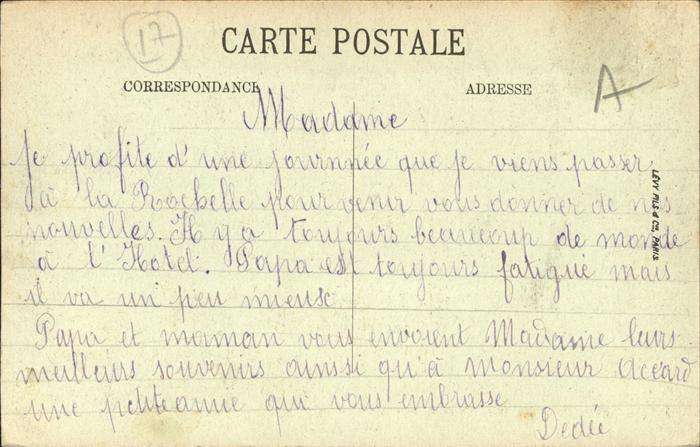 17
CARTE POSTALE
CORRESPONDANCE
ADRESSE
A
Madame
Je profite d'une journnée que je viens passer
à la Rochelle pour venir vous donner de nos
nouvelles. Il y a toujours beaucoup de monde
à l'Hotel. Papa est toujours fatigué mais
il va un peu mieux
Papa et maman vous envoient Madame leurs
meilleurs souvenirs ainssi qu'à monsieur Accard
une petite amie qui vous embrasse
Dedée
LÉVY FILS & Cie, PARIS